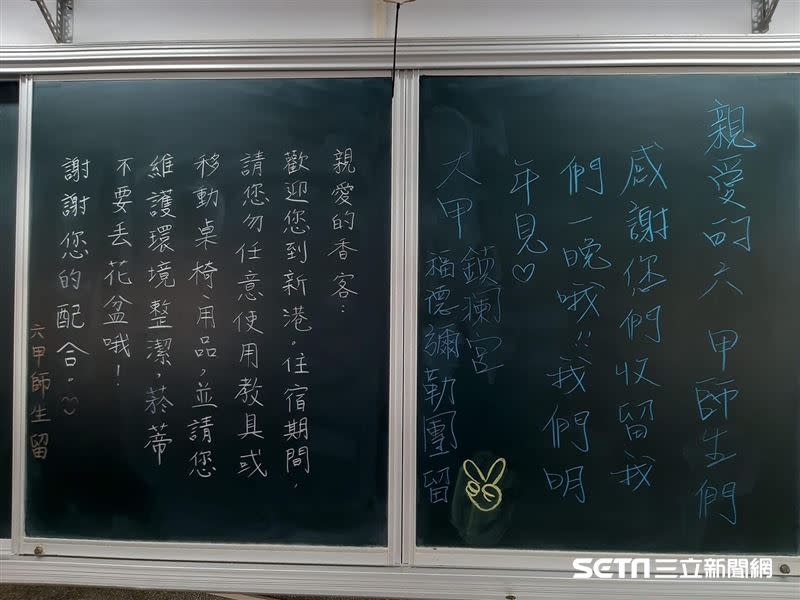 親愛的香客：
歡迎您到新港。住宿期間，
請您勿任意使用教具或
移動桌椅、用品，並請您
維護環境整潔，菸蒂
不要丟花盆哦！
謝謝您的配合。
六甲師生留
親愛的六甲師生們
感謝您們收留我
們一晚哦!!我們明
年見♡
大甲鎮瀾宮
福德彌勒團留
SETN三立新聞網